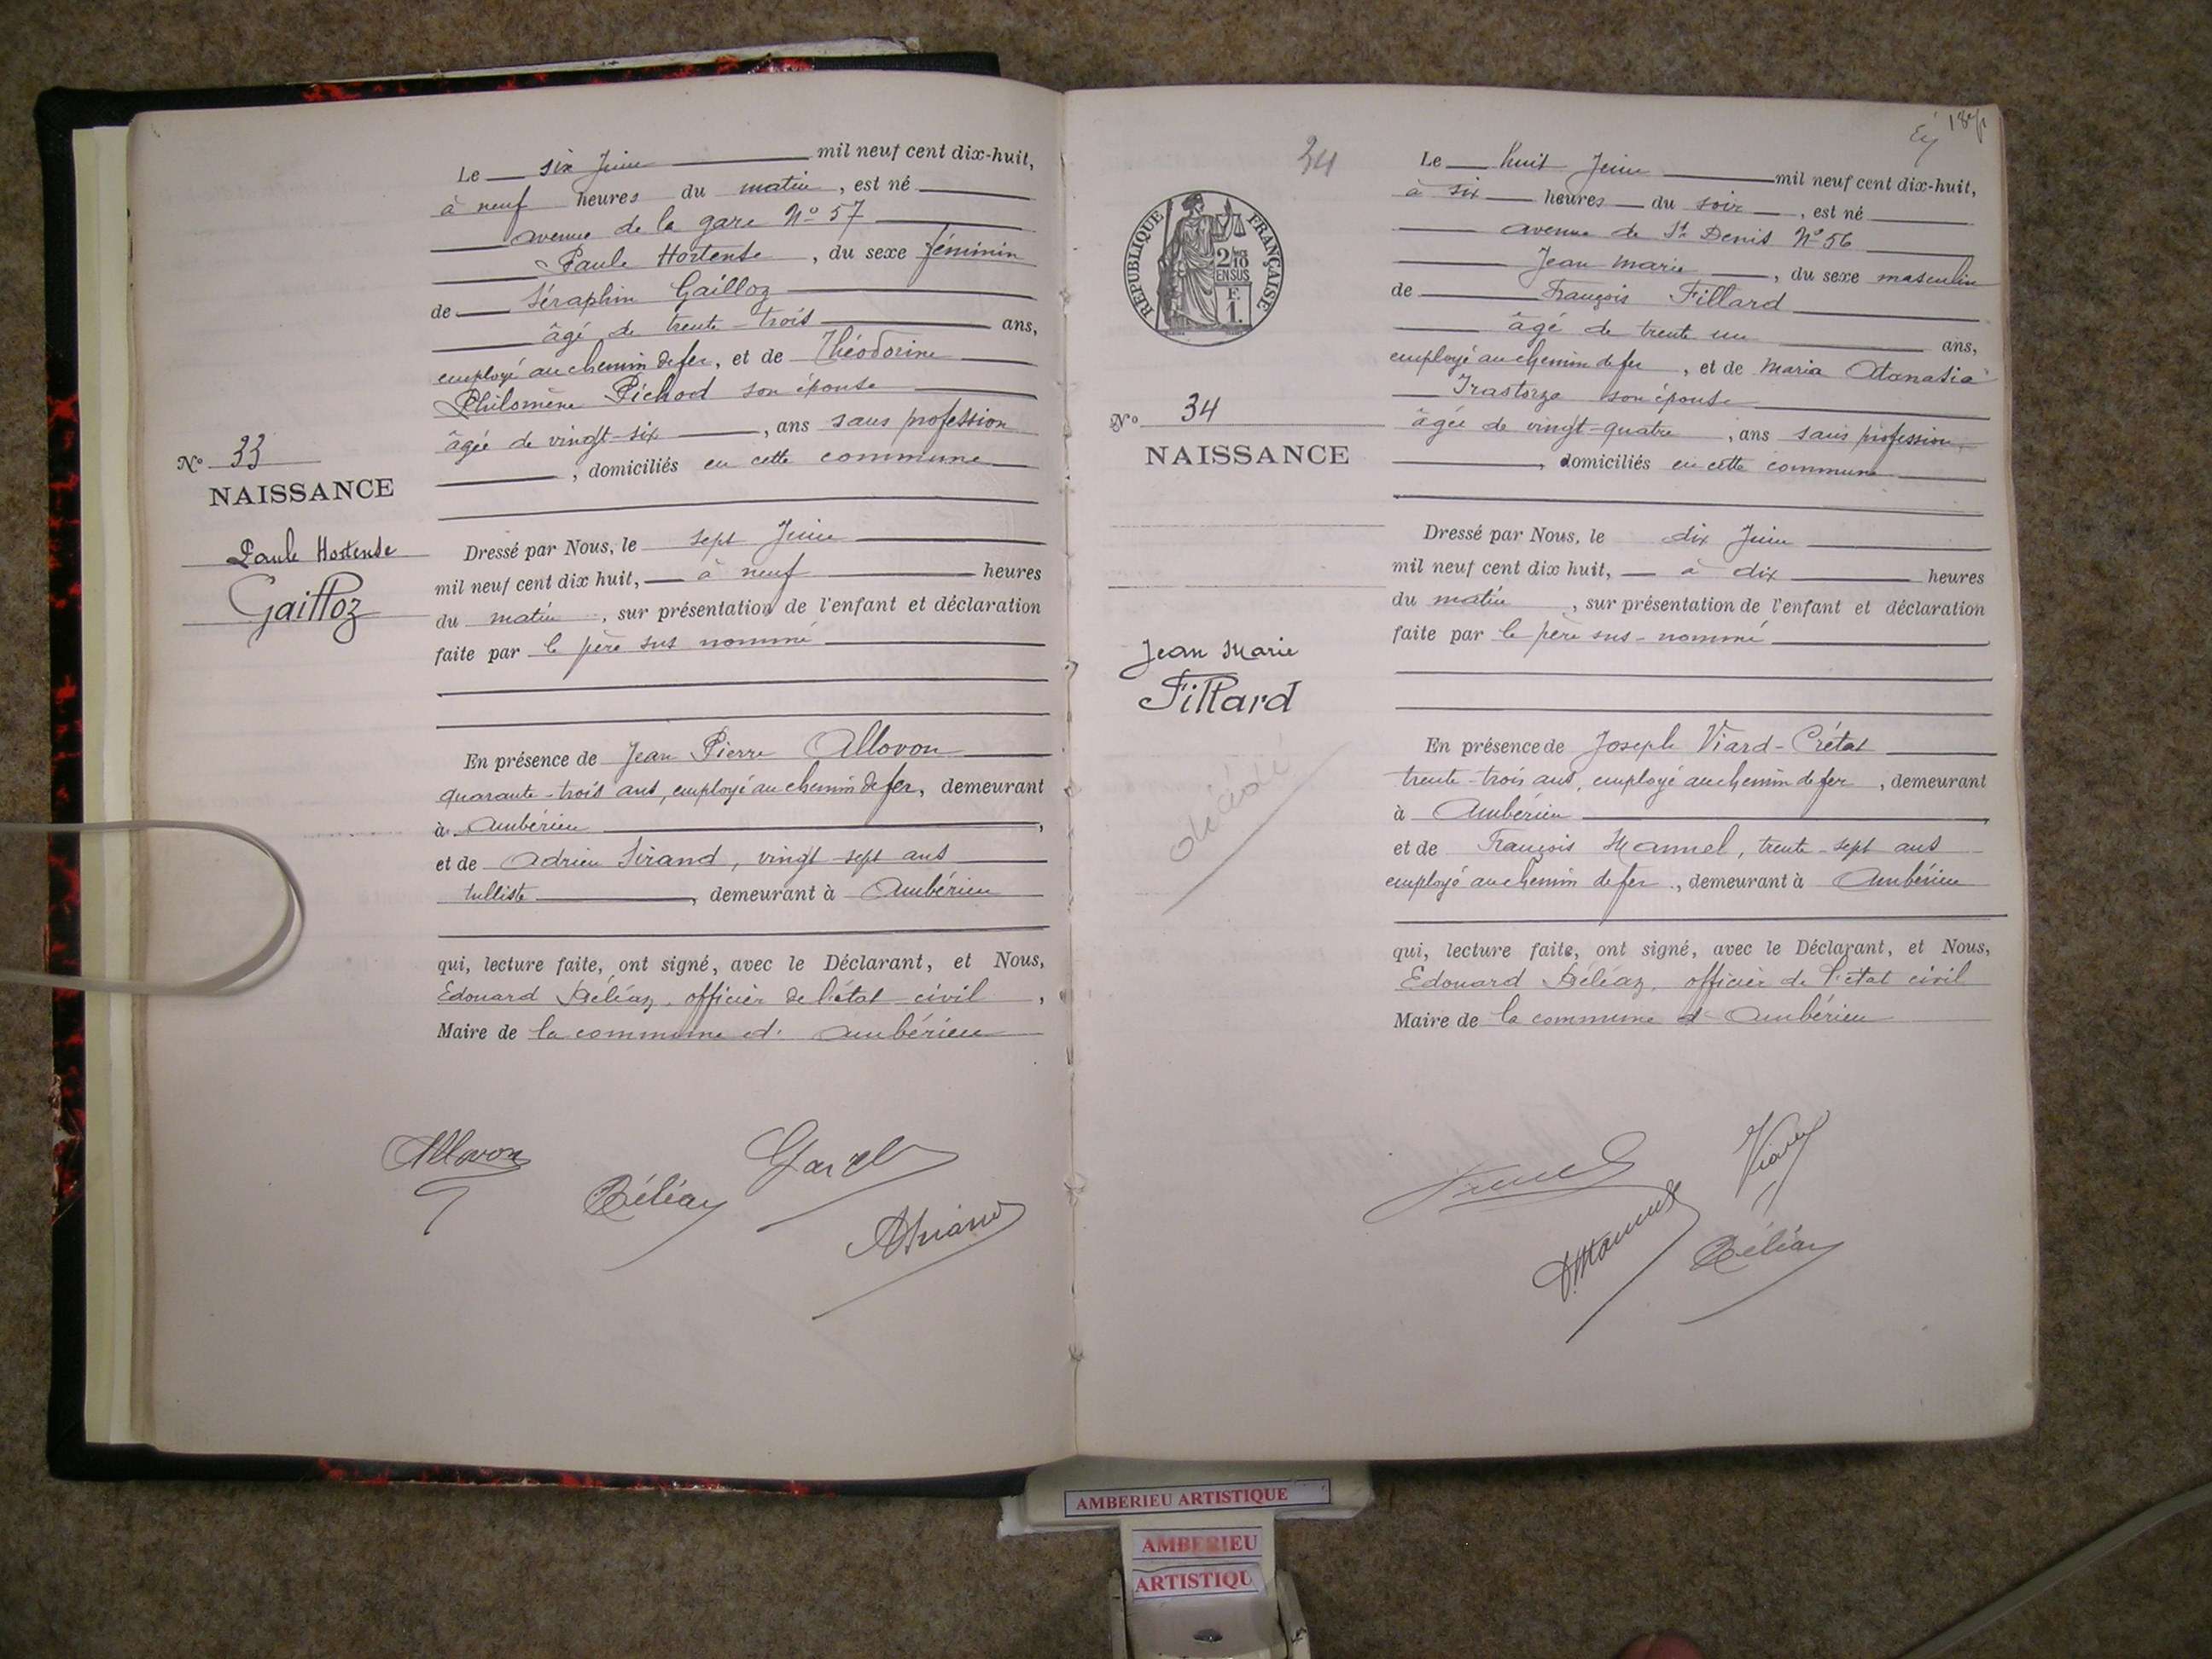 Le six Juin mil neuf cent dix-huit,
à neuf heures du matin, est né
avenue de la gare N° 57
Paule Hortense, du sexe féminin
de Séraphin Gailloz
âgé de trente-trois ans,
employé au chemin de fer, et de Théodorine
Philomène Pichod son épouse
âgée de vingt-six, ans sans profession
, domiciliés en cette commune
N° 33
NAISSANCE
Paule Hortense
Gailloz
Dressé par Nous, le sept Juin
mil neuf cent dix huit, à neuf heures
du matin, sur présentation de l'enfant et déclaration
faite par le père sus nommé
En présence de Jean Pierre Allovon
quarante-trois ans, employé au chemin de fer, demeurant
à Ambérieu,
et de Adrien Sirand, vingt-sept ans
tulliste, demeurant à Ambérieu
qui, lecture faite, ont signé, avec le Déclarant, et Nous,
Edouard Béléaz, officier de l'état civil,
Maire de la commune d'Ambérieu
Allovon
Béléaz
34
Le huit Juin mil neuf cent dix-huit,
à six heures du soir, est né
avenue de St Denis N° 56
Jean Marie, du sexe masculin
de François Fillard
âgé de trente un ans,
employé au chemin de fer, et de Maria Atanasia
Irastorza son épouse
âgée de vingt-quatre, ans sans profession,
, domiciliés en cette commune
RÉPUBLIQUE FRANÇAISE
2/10
EN SUS
F.
1.
N° 34
NAISSANCE
Jean Marie
Fillard
décédé
Dressé par Nous, le dix Juin
mil neuf cent dix huit, à dix heures
du matin, sur présentation de l'enfant et déclaration
faite par le père sus-nommé
En présence de Joseph Viard-Crétat
trente-trois ans, employé au chemin de fer, demeurant
à Ambérieu,
et de François Mannel, trente-sept ans
employé au chemin de fer, demeurant à Ambérieu
qui, lecture faite, ont signé, avec le Déclarant, et Nous,
Edouard Béléaz, officier de l'état civil
Maire de la commune d'Ambérieu
Viard
Béléaz
AMBERIEU ARTISTIQUE
AMBERIEU
ARTISTIQU